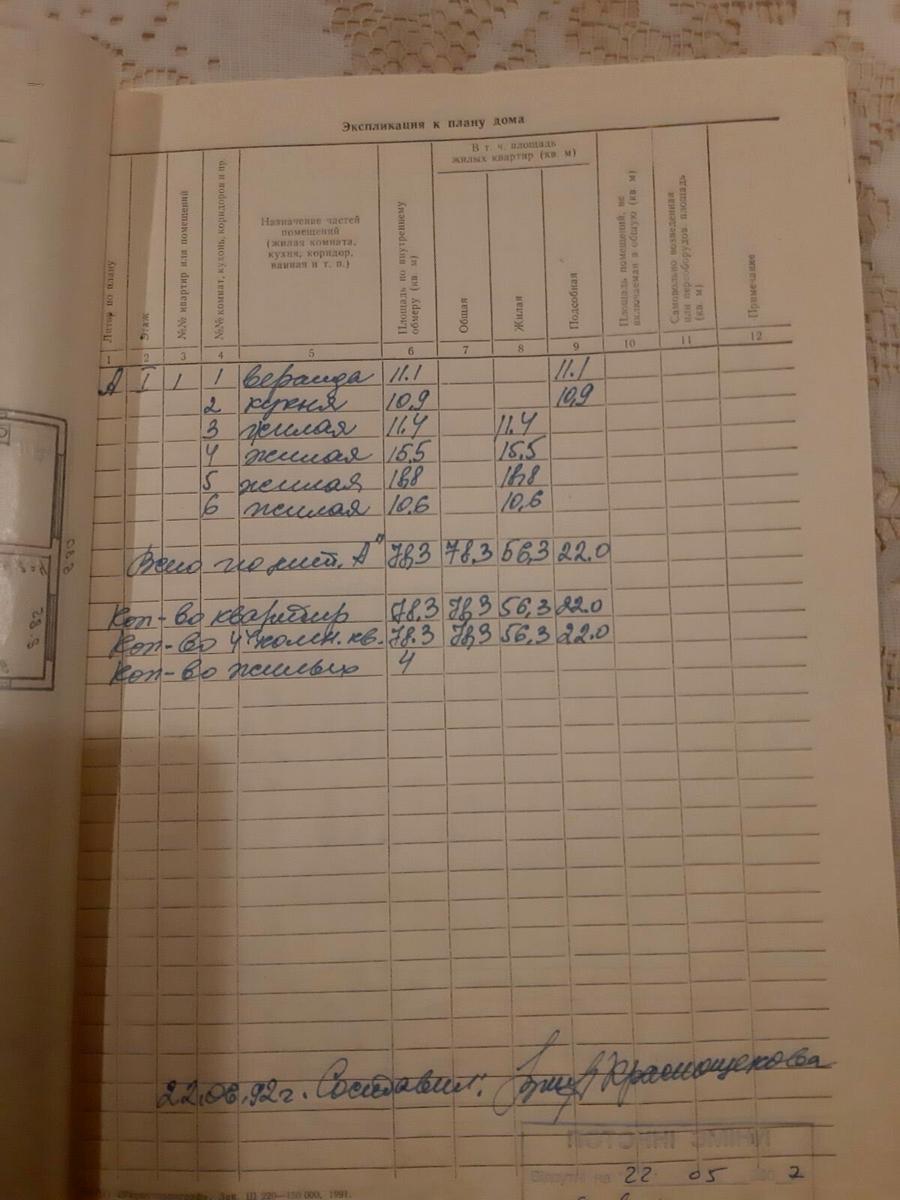 Экспликация к плану дома
Литер по плану
Этаж
№№ квартир или помещений
№№ комнат, кухонь, коридоров и пр.
Назначение частей помещений (жилая комната, кухня, коридор, ванная и т. п.)
Площадь по внутреннему обмеру (кв. м)
В т. ч. площадь жилых квартир (кв. м)
Общая
Жилая
Подсобная
Площадь помещений, не включаемая в общую (кв. м)
Самовольно возведенная или переоборудов. площадь (кв. м)
Примечание
1 2 3 4 5 6 7 8 9 10 11 12
А I 1 1 веранда 11.1 11.1
2 кухня 10,9 10,9
3 жилая 11.4 11.4
4 жилая 15,5 15.5
5 жилая 18,8 18,8
6 жилая 10,6 10,6
Всего по лит. А" 78,3 78,3 56,3 22.0
Кол-во квартир 78,3 78,3 56,3 22.0
Кол-во 4х комн. кв. 78.3 78,3 56,3 22.0
Кол-во жилых 4
22.06.92г. Составил: Краснощекова
22 05 2
Зак. 220—150 000, 1991.